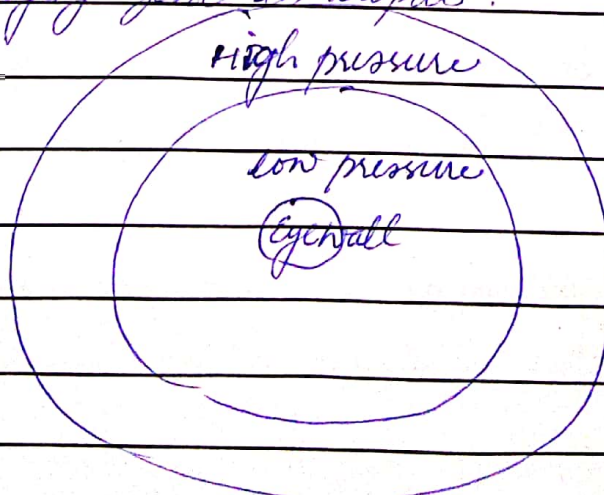 High pressure
low pressure
Eyewall